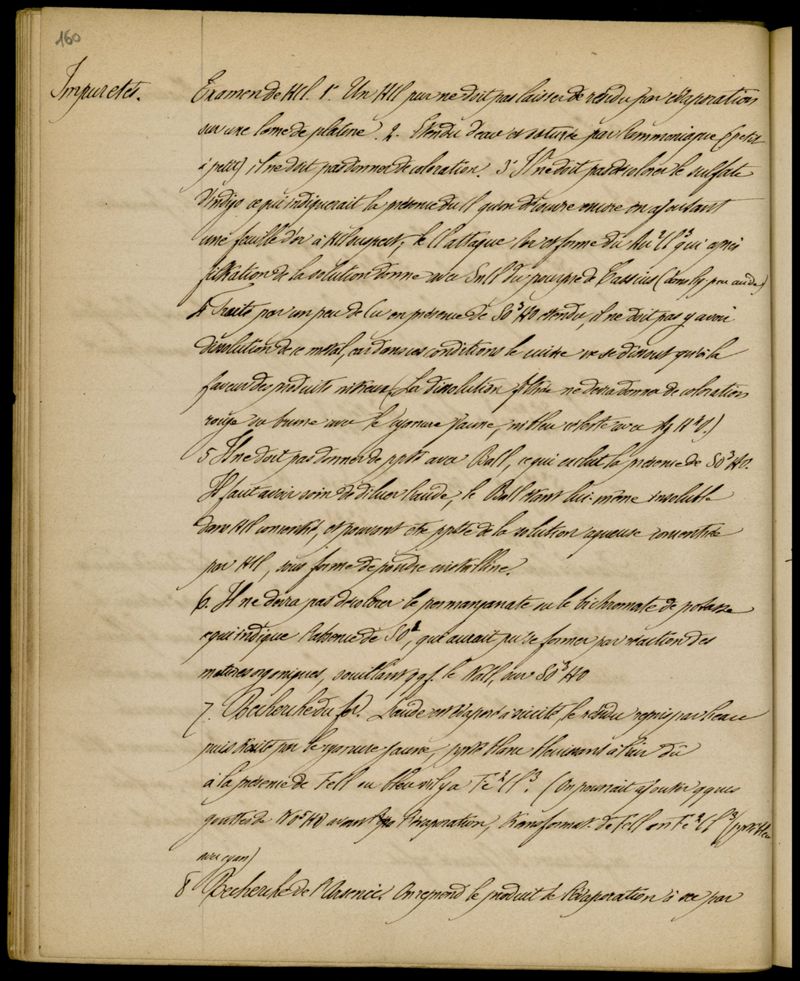 160
Impuretés.
Examen de HCl. 1º Un HCl pur ne doit pas laisser de résidu par évaporation
sur une lame de platine. 2. Etendu d'eau et saturé par l'ammoniaque (petit
à petit) il ne doit pas donner de coloration. 3º Il ne doit pas décolorer le sulfate
d'indigo ce qui indiquerait la présence du Cl qu'on découvre encore en ajoutant
une feuille d'or à HCl suspect, le Cl attaque l'or et forme du Au²Cl³ qui après
filtration de la solution donne avec SnCl du pourpre de Cassius
4 Traité par un peu de Cu en présence de SO³HO étendu, il ne doit pas y avoir
dissolution de ce métal, car dans ces conditions le cuivre ne se dissout qu'à la
faveur des produits nitreux (La dissolution filtrée ne devra donner de coloration
rouge ou brune avec le cyanure jaune, ni bleu céleste avec Az H³O.)
5 Il ne doit pas donner de ppté avec BaCl, ce qui exclut la présence de SO³HO.
Il faut avoir soin de diluer l'acide, le BaCl étant lui-même insoluble
dans HCl concentré, et pouvant être ppté de la solution aqueuse concentrée
par HCl, sous forme de poudre cristalline.
6. Il ne devra pas décolorer le permanganate ou le bichromate de potasse
ce qui indique l'absence de SO², qui aurait pu se former par réaction des
matières organiques, souillant qqf. le NaCl, sur SO³HO
7. Recherche du fer. L'acide est évaporé à siccité, le résidu repris par l'eau
puis traité par le cyanure jaune, ppté blanc bleuissant à l'air dû
à la présence de FeCl ou bleu s'il y a Fe²Cl³. (On pourrait ajouter qques
gouttes de NO⁵HO avant l'évaporation, transformat. de FeCl en Fe²Cl³
avec cyan)
8 Recherche de l'Arsenic. On reprend le produit de l'évaporation à sec par